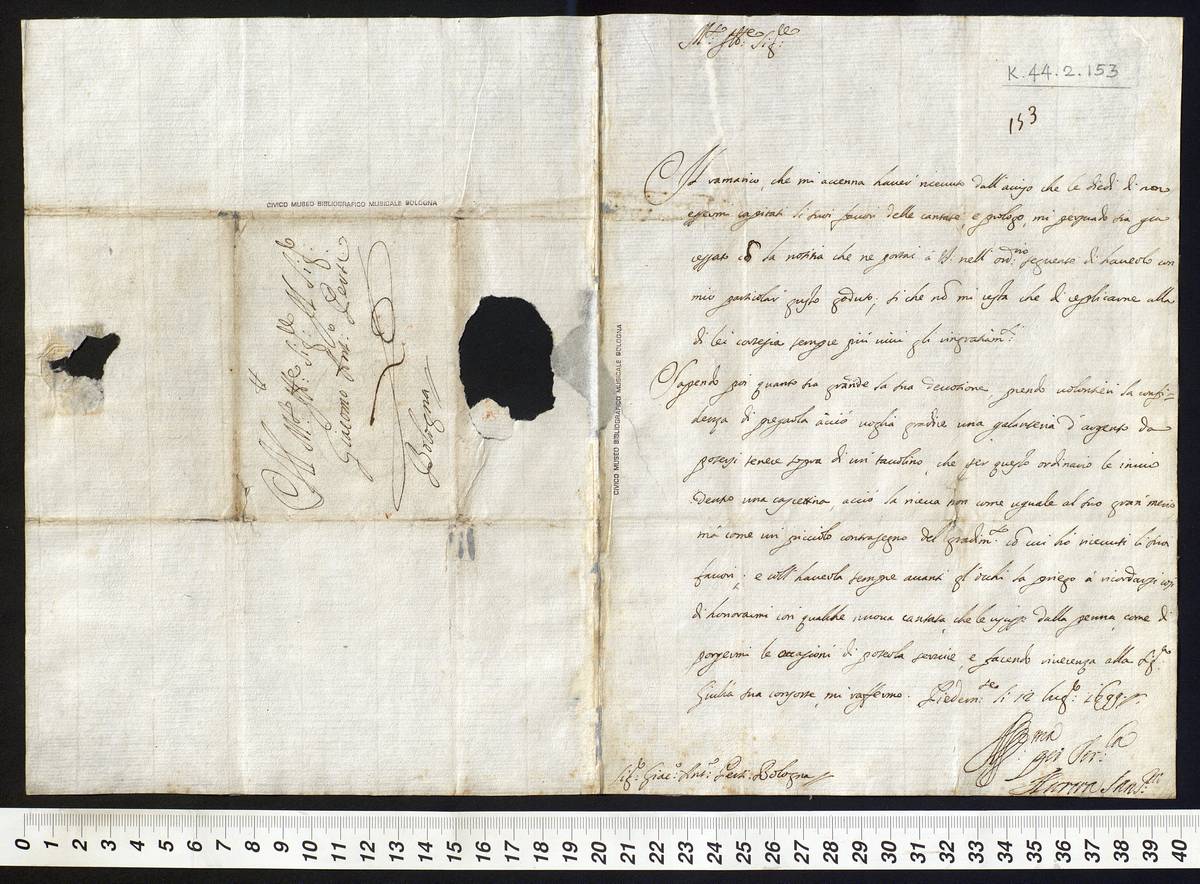 CIVICO MUSEO BIBLIOGRAFICO MUSICALE BOLOGNA
All M.to Ill.re Sig.r
Giacomo Ant.o Perti
Bologna
CIVICO MUSEO BIBLIOGRAFICO MUSICALE BOLOGNA
M.to Ill.re Sig.re
K.44.2.153
153
Il ramarico, che mi accenna haver riceuuto dall'auiso che le diedi di non
essermi capitati li suoi fauori delle cantate, e prologo, mi persuado sia già
cessato cō la notitia che ne portai à V.S. nell'ord.rio seguente di hauerlo con
mio particolar gusto goduto; si che nō mi resta che di replicarne alla
di lei cortesia sempre più uiui gli ringratiam.ti
Sapendo poi quanto sia grande la sua deuotione, prendo volontieri la confi-
denza di pregarla acciò voglia gradire una galanteria d'argento da
potersi tenere sopra di un tauolino, che per questo ordinario le inuio
dentro una cassettina, acciò la riceua non come uguale al suo gran merito
mà come un picciolo contrasegno del gradim.to cō cui hò riceuuti li suoi
fauori; e coll' hauerla sempre auanti gl'occhi la priego à ricordarsi
di honorarmi con qualche nuoua cantata, che le uscisse dalla penna, come di
porgermi le occasioni di poterla seruire, e facendo riuerenza alla Sig.ra
Giulia sua consorte, mi raffermo. li 12 lug.o 1699
per Ser.la
Aurora San
Sig.r Giac.o Ant.o Perti Bologna